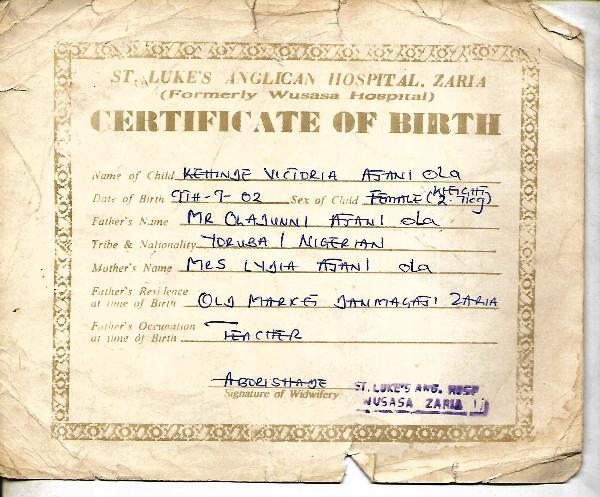 ST. LUKE'S ANGLICAN HOSPITAL, ZARIA
(Formerly Wusasa Hospital)
CERTIFICATE OF BIRTH
Name of Child KEHINDE VICTORIA AJANI Ola
Date of Birth 9TH-9-02 Sex of Child FEMALE (WEIGHT 2.7kg)
Father's Name MR OLAJUNNI AJANI Ola
Tribe & Nationality YORUBA / NIGERIAN
Mother's Name MRS LYDIA AJANI Ola
Father's Residence
at time of Birth OLD MARKET DANMAGAJI ZARIA
Father's Occupation
at time of Birth TEACHER
ABORISHADE
Signature of Widwifery
ST. LUKE'S ANG. HOSP
WUSASA ZARIA